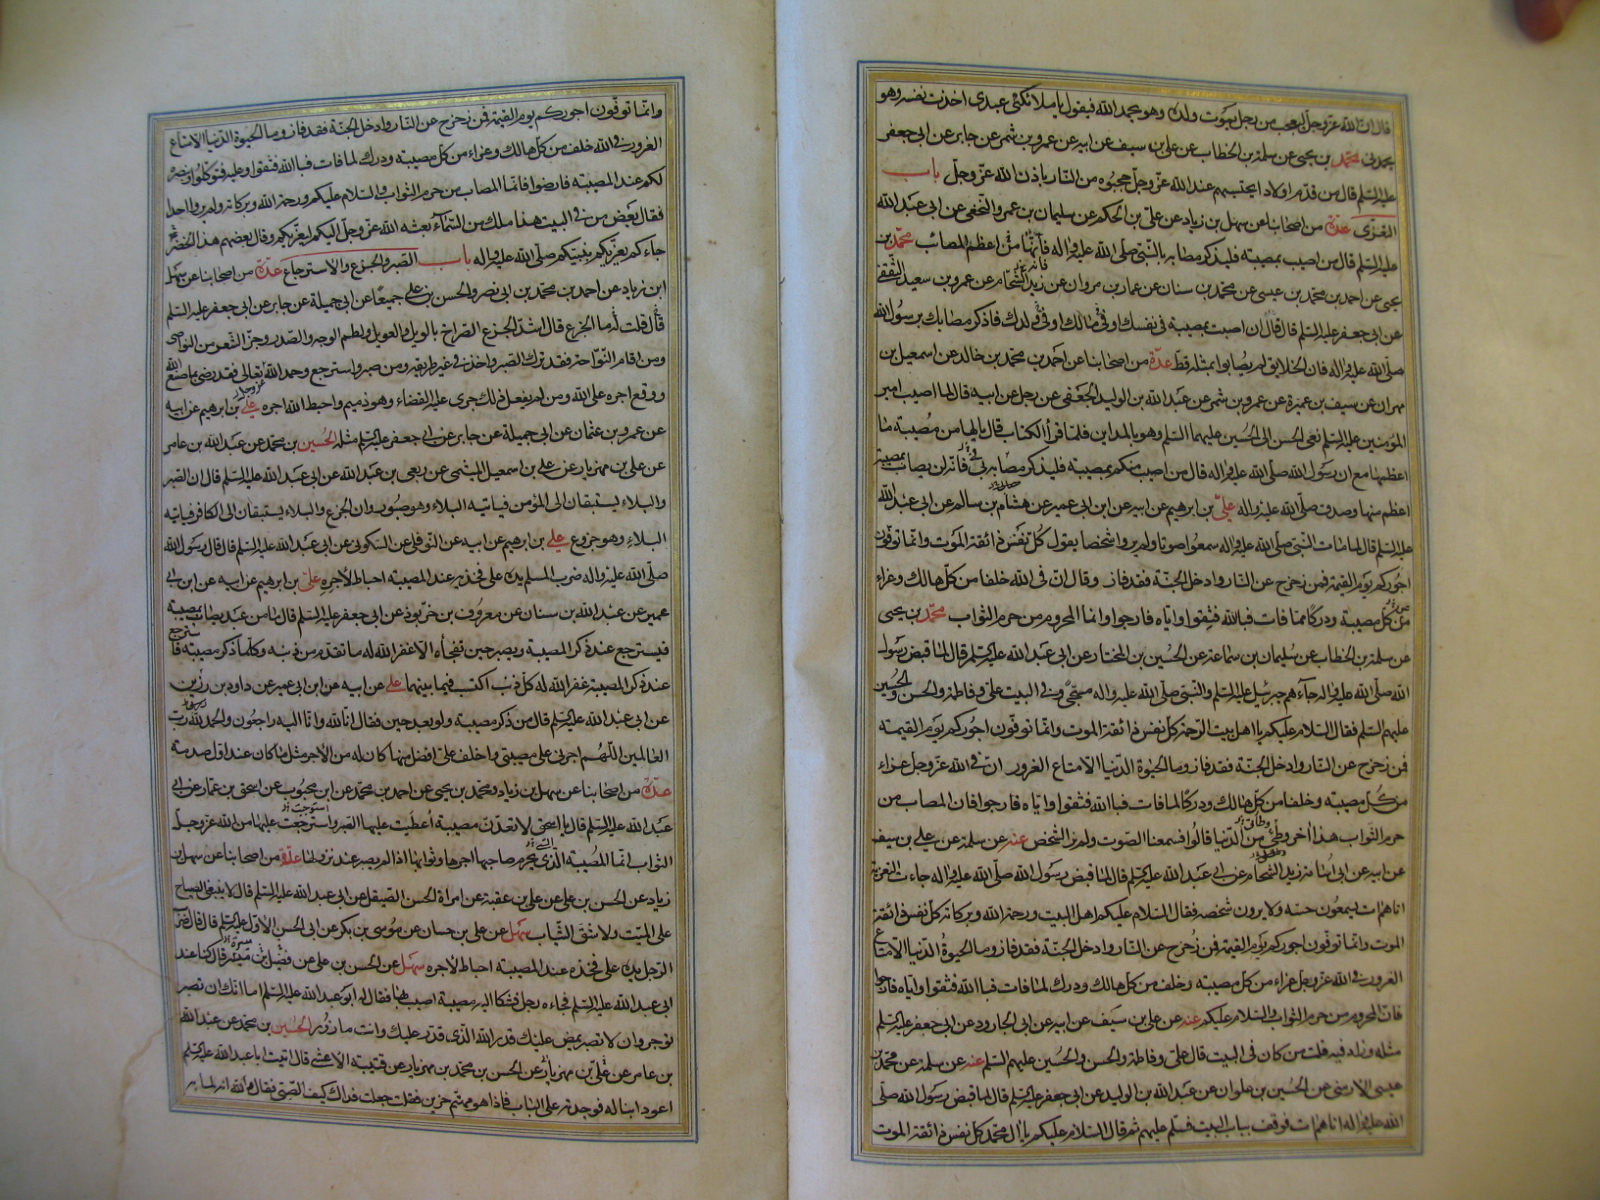 قال ان الله عز وجل ليعجب من رجل يموت ولده وهو يحمد الله فيقول يا ملائكتي عبدي اخذت نفسه وهو
يحمدني محمد بن يحيى عن سلمة بن الخطاب عن علي بن سيف عن ابيه عن عمرو بن شمر عن جابر عن ابي جعفر
عليه السلم قال من قدم اولادا يحتسبهم عند الله عز وجل حجبوه من النار باذن الله عز وجل باب
التعزى عدة من اصحابنا عن سهل بن زياد عن علي بن الحكم عن سليمان بن عمرو النخعي عن ابي عبد الله
عليه السلم قال من اصيب بمصيبة فليذكر مصابه بالنبي صلى الله عليه واله فانها من اعظم المصائب محمد بن
يحيى عن احمد بن محمد بن عيسى عن محمد بن سنان عن عمار بن مروان عن زيد الشحام عن عمرو بن سعيد الثقفي
عن ابي جعفر عليه السلم قال قال ان اصبت بمصيبة في نفسك او في مالك او في ولدك فاذكر مصابك برسول الله
صلى الله عليه واله فان الخلايق لم يصابوا بمثله قط عدة من اصحابنا عن احمد بن محمد بن خالد عن اسمعيل بن
مهران عن سيف بن عميرة عن عمرو بن شمر عن عبد الله بن الوليد الجعفي عن رجل عن ابيه قال لما اصيب امير
المؤمنين عليه السلم نعى الحسن الى الحسين عليهما السلم وهو بالمداين فلما قرأ الكتاب قال يا لها من مصيبة ما
اعظمها مع ان رسول الله صلى الله عليه واله قال من اصيب منكم بمصيبة فليذكر مصابه بي فانه لن يصاب بمصيبة
اعظم منها وصدق صلى الله عليه واله علي بن ابرهيم عن ابيه عن ابن ابي عمير عن هشام بن سالم عن ابي عبد الله
عليه السلم قال لما مات النبي صلى الله عليه واله سمعوا صوتا ولم يروا شخصا يقول كل نفس ذائقة الموت وانما توفون
اجوركم يوم القيمة فمن زحزح عن النار وادخل الجنة فقد فاز وقال ان في الله خلفا من كل هالك وعزاء
من كل مصيبة ودركا مما فات فبالله فثقوا واياه فارجوا وانما المحروم من حرم الثواب محمد بن يحيى
عن سلمة بن الخطاب عن سليمان بن سماعة عن الحسين بن المختار عن ابي عبد الله عليه السلم قال لما قبض رسول
الله صلى الله عليه واله جاءهم جبرئيل عليه السلم والنبي صلى الله عليه واله مسجى وفي البيت علي وفاطمة والحسن والحسين
عليهم السلم فقال السلام عليكم يا اهل بيت الرحمة كل نفس ذائقة الموت وانما توفون اجوركم يوم القيمة
فمن زحزح عن النار وادخل الجنة فقد فاز وما الحيوة الدنيا الا متاع الغرور ان في الله عز وجل عزاء
من كل مصيبة وخلفا من كل هالك ودركا لما فات فبالله فثقوا واياه فارجوا فان المصاب من
حرم الثواب هذا اخر وطئي من الدنيا قالوا فسمعنا الصوت ولم نر الشخص عنه عن سلمة عن علي بن سيف
عن ابيه عن ابي اسامة زيد الشحام عن ابي عبد الله عليه السلم قال لما قبض رسول الله صلى الله عليه واله جاءت التعزية
اتاهم ات يسمعون حسه ولا يرون شخصه فقال السلام عليكم اهل البيت ورحمة الله وبركاته كل نفس ذائقة
الموت وانما توفون اجوركم يوم القيمة فمن زحزح عن النار وادخل الجنة فقد فاز وما الحيوة الدنيا الا متاع
الغرور في الله عز وجل عزاء من كل مصيبة وخلف من كل هالك ودرك لما فات فبالله فثقوا واياه فارجوا
فان المحروم من حرم الثواب والسلام عليكم عنه عن علي بن سيف عن ابيه عن ابي الجارود عن ابي جعفر عليه السلم
مثله وزاد فيه قلت من كان في البيت قال علي وفاطمة والحسن والحسين عليهم السلم عنه عن سلمة عن محمد بن
عيسى الارمني عن الحسين بن علوان عن عبد الله بن الوليد عن ابي جعفر عليه السلم قال لما قبض رسول الله صلى
الله عليه واله اتاهم ات فوقف بباب البيت فسلم عليهم ثم قال السلام عليكم يا ال محمد كل نفس ذائقة الموت
وانما توفون اجوركم يوم القيمة فمن زحزح عن النار وادخل الجنة فقد فاز وما الحيوة الدنيا الا متاع
الغرور في الله خلف من كل هالك وعزاء من كل مصيبة ودرك لما فات فبالله فثقوا وعليه فتوكلوا وبنصره
لكم عند المصيبة فارضوا فانما المصاب من حرم الثواب والسلام عليكم ورحمة الله وبركاته ولم يروا احدا
فقال بعض من في البيت هذا ملك من السماء بعثه الله عز وجل اليكم ليعزيكم وقال بعضهم هذا الخضر
جاءكم يعزيكم بنبيكم صلى الله عليه واله باب الصبر والجزع والاسترجاع عدة من اصحابنا عن سهل
ابن زياد عن احمد بن محمد بن ابي نصر والحسن بن علي جميعا عن ابي جميلة عن جابر عن ابي جعفر عليه السلم
قال قلت له ما الجزع قال اشد الجزع الصراخ بالويل والعويل ولطم الوجه والصدر وجز الشعر من النواصي
ومن اقام النواحة فقد ترك الصبر واخذ في غير طريقه ومن صبر واسترجع وحمد الله تعالى فقد رضي بما صنع الله
ووقع اجره على الله ومن لم يفعل ذلك جرى عليه القضاء وهو ذميم واحبط الله اجره علي بن ابرهيم عن ابيه
عن عمرو بن عثمان عن ابي جميلة عن جابر عن ابي جعفر عليه السلم مثله الحسين بن محمد عن عبد الله بن عامر
عن علي بن مهزيار عن علي بن اسمعيل الميثمي عن ربعي بن عبد الله عن ابي عبد الله عليه السلم قال ان الصبر
والبلاء يستبقان الى المؤمن فياتيه البلاء وهو صبور وان الجزع والبلاء يستبقان الى الكافر فياتيه
البلاء وهو جزوع علي بن ابرهيم عن ابيه عن النوفلي عن السكوني عن ابي عبد الله عليه السلم قال قال رسول الله
صلى الله عليه واله ضرب المسلم يده على فخذه عند المصيبة احباط لاجره علي بن ابرهيم عن ابيه عن ابن ابي
عمير عن عبد الله بن سنان عن معروف بن خربوذ عن ابي جعفر عليه السلم قال ما من عبد يصاب بمصيبة
فيسترجع عند ذكر المصيبة ويصبر حين تفجأه الا غفر الله له ما تقدم من ذنبه وكلما ذكر مصيبة فاسترجع
عند ذكر المصيبة غفر الله له كل ذنب اكتسب فيما بينهما علي عن ابيه عن ابن ابي عمير عن داود بن رزين
عن ابي عبد الله عليه السلم قال من ذكر مصيبة ولو بعد حين فقال انا لله وانا اليه راجعون والحمد لله رب
العالمين اللهم اجرني على مصيبتي واخلف علي افضل منها كان له من الاجر مثل ما كان عند اول صدمة
عدة من اصحابنا عن سهل بن زياد ومحمد بن يحيى عن احمد بن محمد عن ابن محبوب عن اسحق بن عمار عن ابي
عبد الله عليه السلم قال يا اسحق لا تعدن مصيبة اعطيت عليها الصبر واسترجعت عليها من الله عز وجل
الثواب انما المصيبة الذي يحرم صاحبها اجرها وثوابها اذا لم يصبر عند نزولها عدة من اصحابنا عن سهل بن
زياد عن الحسن بن علي عن علي بن عقبة عن امراة الحسن الصيقل عن ابي عبد الله عليه السلم قال لا ينبغي الصياح
على الميت ولا شق الثياب سهل عن علي بن حسان عن موسى بن بكر عن ابي الحسن الاول عليه السلم قال قال ضرب
الرجل يده على فخذه عند المصيبة احباط لاجره سهل عن الحسن بن علي عن فضيل بن ميسر قال كنا عند
ابي عبد الله عليه السلم فجاءه رجل فشكا اليه مصيبة اصيب بها فقال له ابو عبد الله عليه السلم اما انك ان تصبر
توجر وان لا تصبر يمض عليك قدر الله الذي قدر عليك وانت مازور الحسين بن محمد عن عبد الله
بن عامر عن علي بن مهزيار عن الحسن بن محمد بن مهزيار عن قتيبة الاعشى قال اتيت ابا عبد الله عليه السلم
اعود ابنا له فوجدته على الباب فاذا هو مهتم حزين فقلت جعلت فداك كيف الصبي فقال والله انه لما به